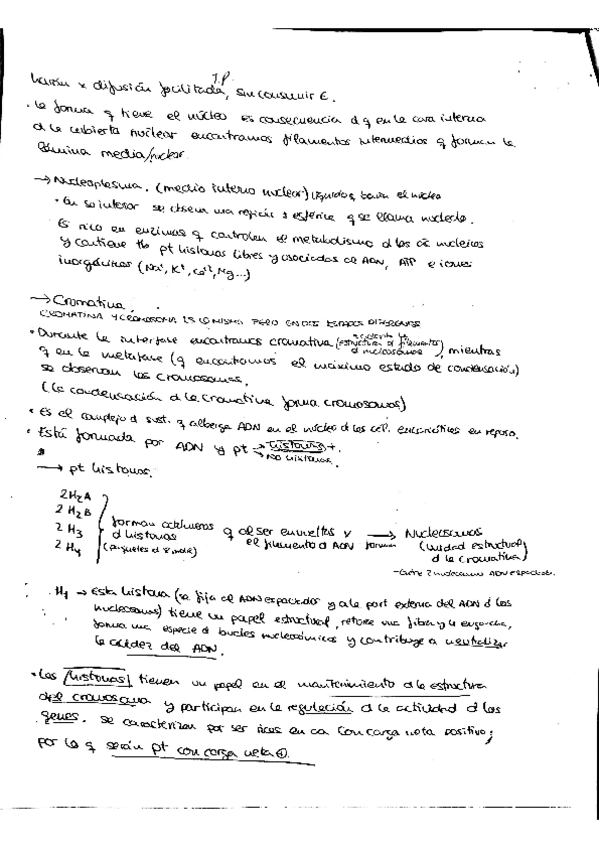 T.P.
harán x difusión facilitada, sin consumir E.
· la forma q tiene el núcleo es consecuencia d q en la cara interna
d la cubierta nuclear encontramos filamentos intermedios q forman la
lámina media/nuclear.
→ Nucleoplasma. (medio interno nuclear) líquido q baña el núcleo
· En su interior se observa una región ± esférica q se llama nucleolo.
Es rico en enzimas q controlan el metabolismo d los ác nucleicos
y contiene tb pt histonas libres y asociadas al ADN, ATP e iones
inorgánicos (Na⁺, K⁺, Ca²⁺, Mg...)
→ Cromatina
CROMATINA Y CROMOSOMA ES LO MISMO PERO EN DOS ESTADOS DIFERENTES
· Durante la interfase encontramos cromatina (estructura d filamentos d nucleosomas), mientras
q en la metafase (q encontramos el máximo estado de condensación)
se observan los cromosomas.
(la condensación d la cromatina forma cromosomas)
· Es el complejo d sust. q alberga ADN en el núcleo d las cél. eucarióticas en reposo.
· Está formada por ADN y pt → histonas +.
→ No histonas.
→ pt histonas.
2H₂A
2H₂B
2H₃
2H₄
forman octámeros d histonas (paquetes d 8 mole)
q al ser envueltos x el filamento d ADN forman
→ Nucleosomas (unidad estructural d la cromatina)
- Entre 2 nucleosomas ADN espaciador.
· H₁ → Esta histona (se fija al ADN espaciador y a la part externa del ADN d los
nucleosomas) tiene un papel estructural, retuerce una fibra y la engancha,
forma una especie d bucles nucleosómicos y contribuye a neutralizar
la acidez del ADN.
· Las histonas tienen un papel en el mantenimiento d la estructura
del cromosoma y participan en la regulación d la actividad d los
genes. Se caracterizan por ser ricas en aa con carga neta positiva;
por lo q serán pt con carga neta ⊕.